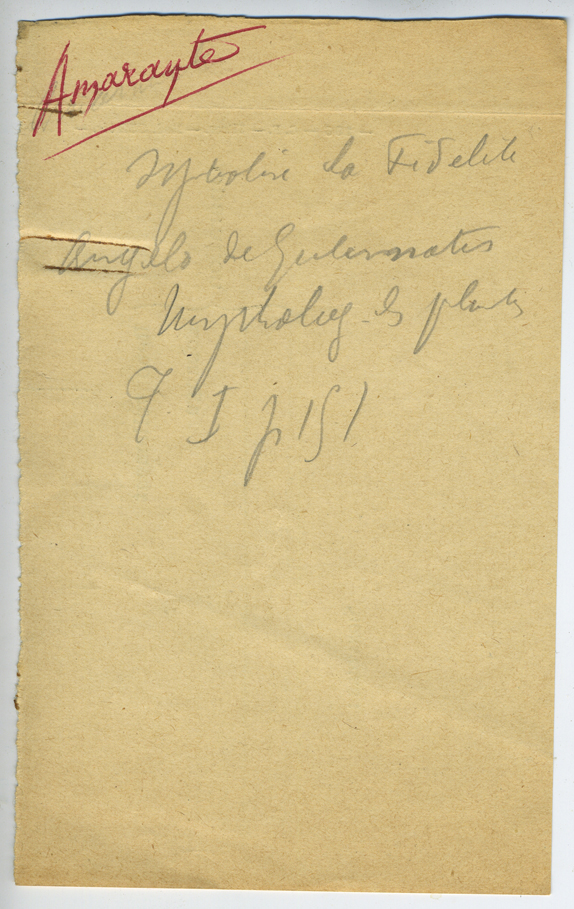 Amarante
Symbolise la Fidelite
Angelo de Gubernatis
Mytholog des plantes
T I p 151